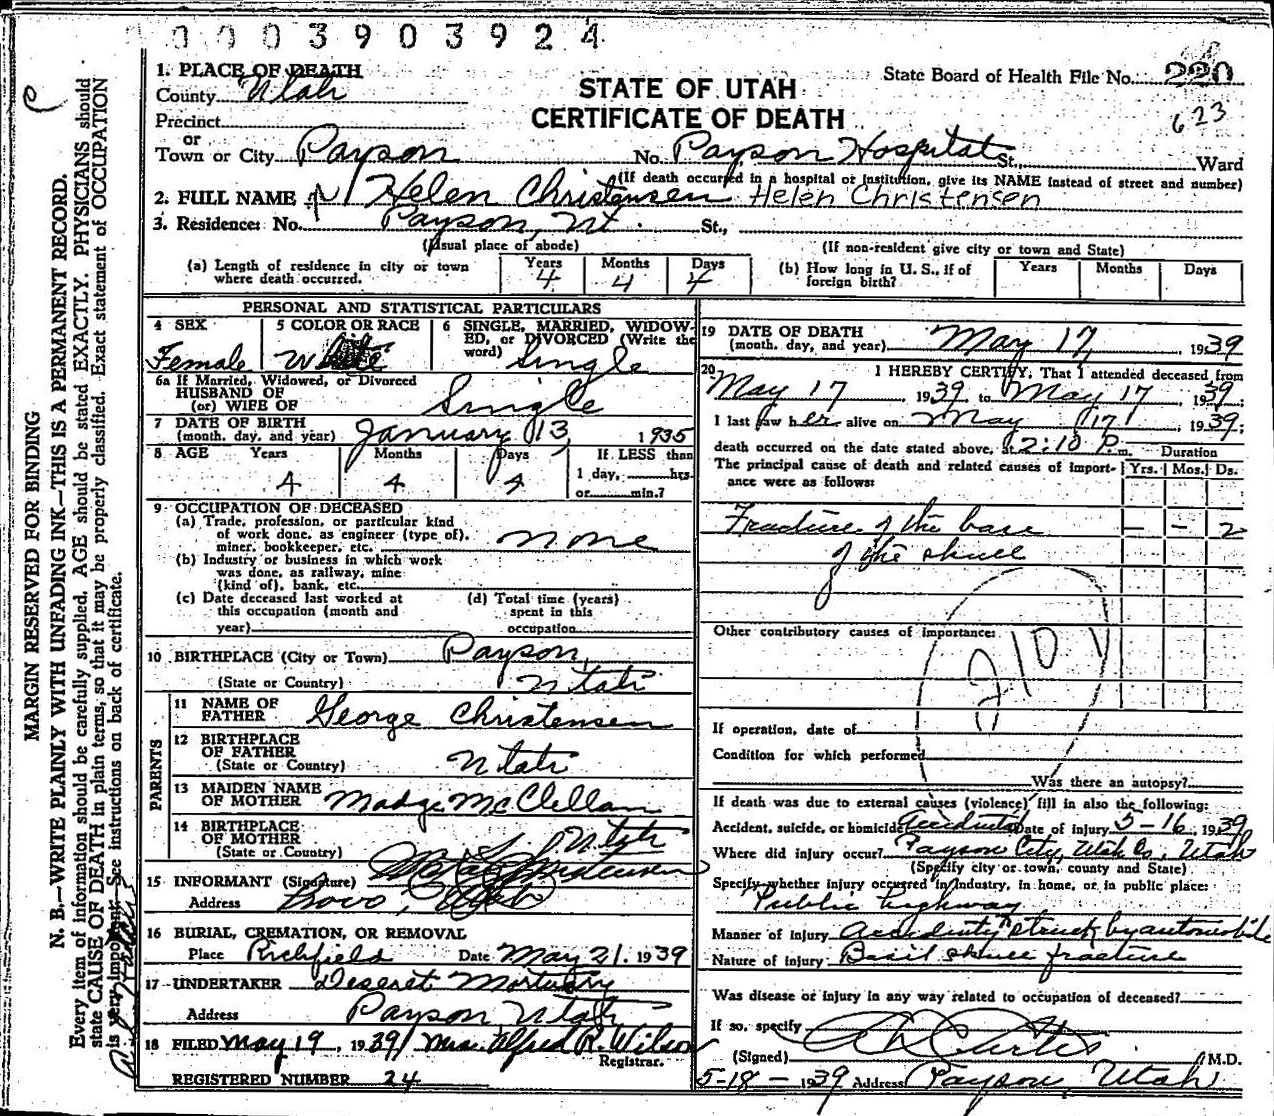 0003903924
1. PLACE OF DEATH
County Utah
STATE OF UTAH
CERTIFICATE OF DEATH
State Board of Health File No. 220
623
Precinct
or
Town or City Payson No. Payson Hospital St., Ward
(If death occurred in a hospital or institution, give its NAME instead of street and number)
2. FULL NAME Helen Christensen Helen Christensen
3. Residence: No. Payson, Ut. St.,
(Usual place of abode) (If non-resident give city or town and State)
(a) Length of residence in city or town where death occurred. Years 4 Months 4 Days 4
(b) How long in U. S., if of foreign birth? Years Months Days
PERSONAL AND STATISTICAL PARTICULARS
4 SEX Female
5 COLOR OR RACE White
6 SINGLE, MARRIED, WIDOWED, or DIVORCED (Write the word) Single
6a If Married, Widowed, or Divorced
HUSBAND OF
(or) WIFE OF Single
7 DATE OF BIRTH
(month, day, and year) January 13, 1935
8 AGE Years 4 Months 4 Days 4 If LESS than 1 day, hrs. or min.?
9 OCCUPATION OF DECEASED
(a) Trade, profession, or particular kind
of work done, as engineer (type of),
miner, bookkeeper, etc. none
(b) Industry or business in which work
was done, as railway, mine
(kind of), bank, etc.
(c) Date deceased last worked at
this occupation (month and
year)
(d) Total time (years)
spent in this
occupation
10 BIRTHPLACE (City or Town) Payson,
(State or Country) Utah
PARENTS
11 NAME OF
FATHER George Christensen
12 BIRTHPLACE
OF FATHER
(State or Country) Utah
13 MAIDEN NAME
OF MOTHER Madge McClellan
14 BIRTHPLACE
OF MOTHER
(State or Country) Utah
15 INFORMANT (Signature)
Address Provo, Utah
16 BURIAL, CREMATION, OR REMOVAL
Place Richfield Date May 21, 1939
17 UNDERTAKER Deseret Mortuary
Address Payson Utah
18 FILED May 19, 1939 Mrs. Alfred R. Wilson
Registrar.
REGISTERED NUMBER 24
19 DATE OF DEATH
(month, day, and year) May 17, 1939
20 I HEREBY CERTIFY, That I attended deceased from
May 17, 1939, to May 17, 1939;
I last saw her alive on May 17, 1939;
death occurred on the date stated above, at 2:10 P.m. Duration
The principal cause of death and related causes of importance were as follows: Yrs. Mos. Ds.
Fracture of the base - - 2
of the skull
Other contributory causes of importance:
2101
If operation, date of
Condition for which performed
Was there an autopsy?
If death was due to external causes (violence) fill in also the following:
Accident, suicide, or homicide Accidental Date of injury 5-16, 1939
Where did injury occur? Payson City, Utah Co., Utah
(Specify city or town, county and State)
Specify whether injury occurred in industry, in home, or in public place:
Public highway
Manner of injury struck by automobile
Nature of injury Basil skull fracture
Was disease or injury in any way related to occupation of deceased?
If so, specify
(Signed) Curtis M.D.
5-18-1939 Address Payson, Utah
MARGIN RESERVED FOR BINDING
N. B.—WRITE PLAINLY WITH UNFADING INK—THIS IS A PERMANENT RECORD.
Every item of information should be carefully supplied. AGE should be stated EXACTLY. PHYSICIANS should
state CAUSE OF DEATH in plain terms, so that it may be properly classified. Exact statement of OCCUPATION
is very important. See instructions on back of certificate.